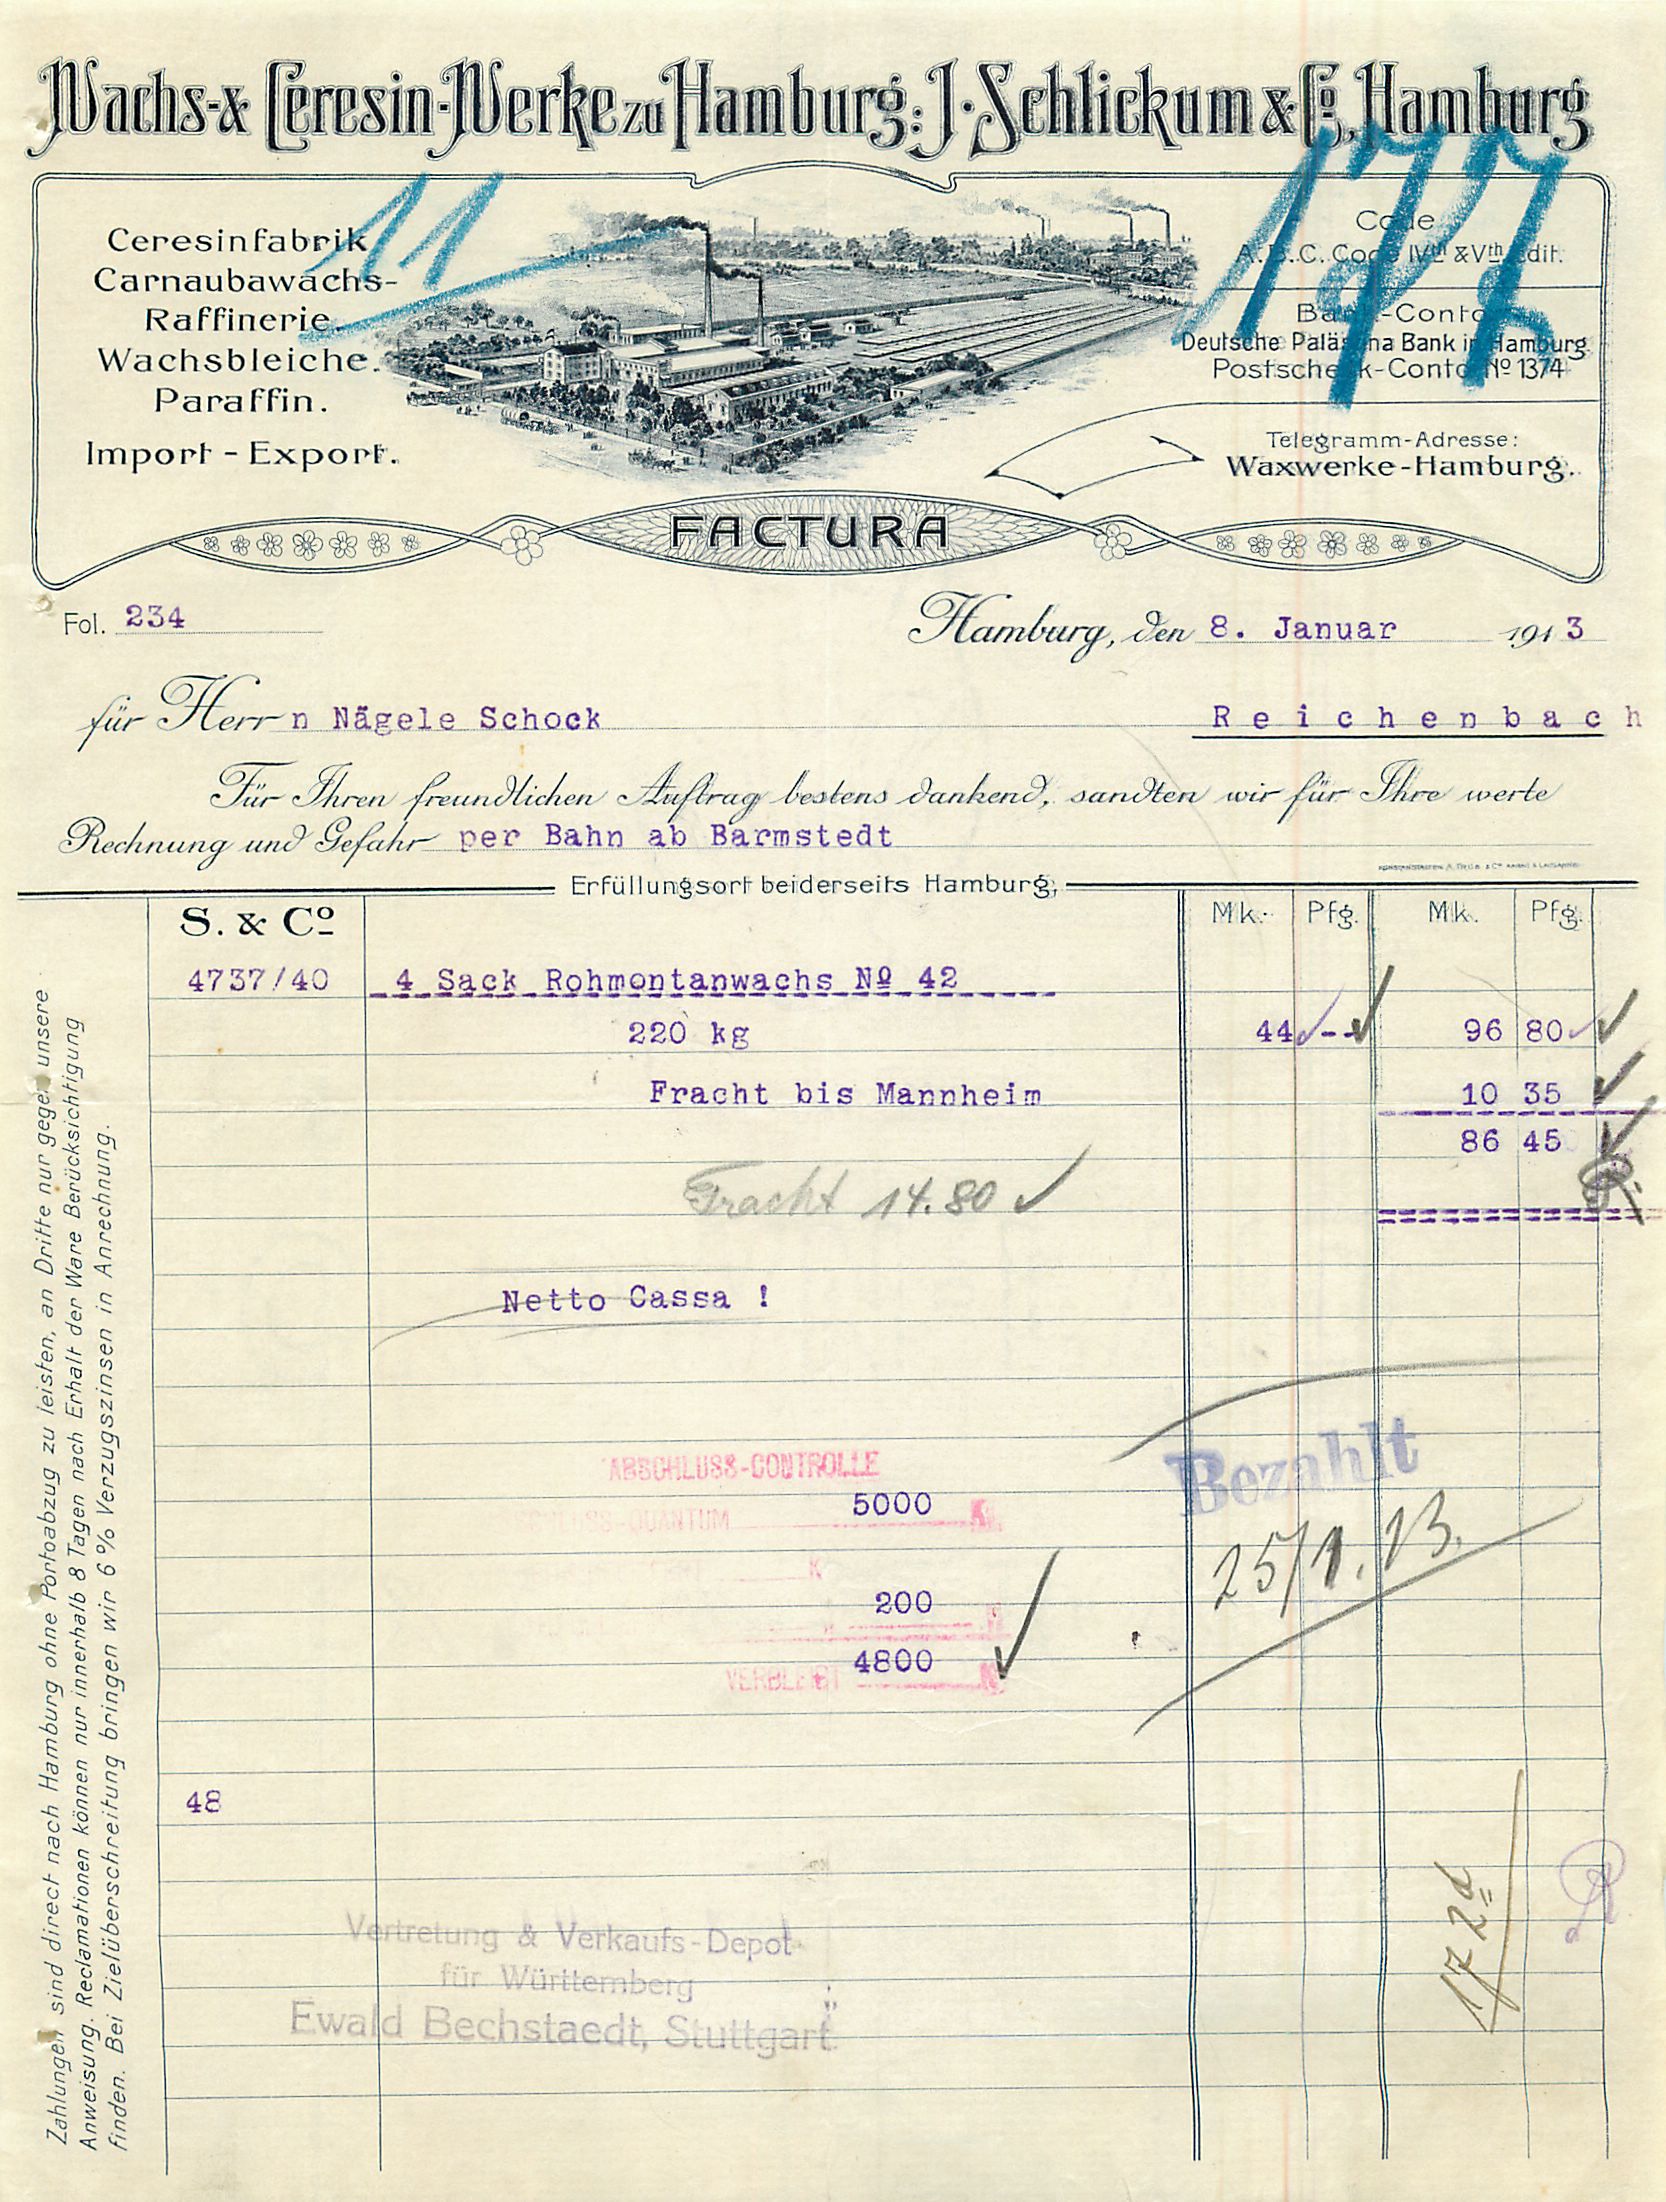 Wachs- & Ceresin-Werke zu Hamburg: J. Schlickum & Co., Hamburg
11
177
Ceresinfabrik
Carnaubawachs-
Raffinerie.
Wachsbleiche.
Paraffin.
Import - Export.
Code
A.B.C. Code IVth & Vth Edit.
Bank-Conto
Deutsche Palästina Bank in Hamburg.
Postscheck-Conto No 1374
Telegramm-Adresse:
Waxwerke-Hamburg.
FACTURA
Fol. 234
Hamburg, den 8. Januar 1913
für Herrn Nägele Schock Reichenbach
Für Ihren freundlichen Auftrag bestens dankend, sandten wir für Ihre werte
Rechnung und Gefahr per Bahn ab Barmstedt
Erfüllungsort beiderseits Hamburg.
S. & Co Mk. Pfg. Mk. Pfg.
4737/40 4 Sack Rohmontanwachs No 42
220 kg 44 -- 96 80
Fracht bis Mannheim 10 35
86 45
Fracht 14.80
Netto Cassa !
Bezahlt
25/1.13.
ABSCHLUSS-CONTROLLE
SCHLUSS-QUANTUM 5000 K
K
200
VERBLEIBT 4800
48
17 2d
Vertretung & Verkaufs-Depot
für Württemberg
Ewald Bechstaedt, Stuttgart.
Zahlungen sind direct nach Hamburg ohne Portoabzug zu leisten, an Dritte nur gegen unsere
Anweisung. Reclamationen können nur innerhalb 8 Tagen nach Erhalt der Ware Berücksichtigung
finden. Bei Zielüberschreitung bringen wir 6% Verzugszinsen in Anrechnung.